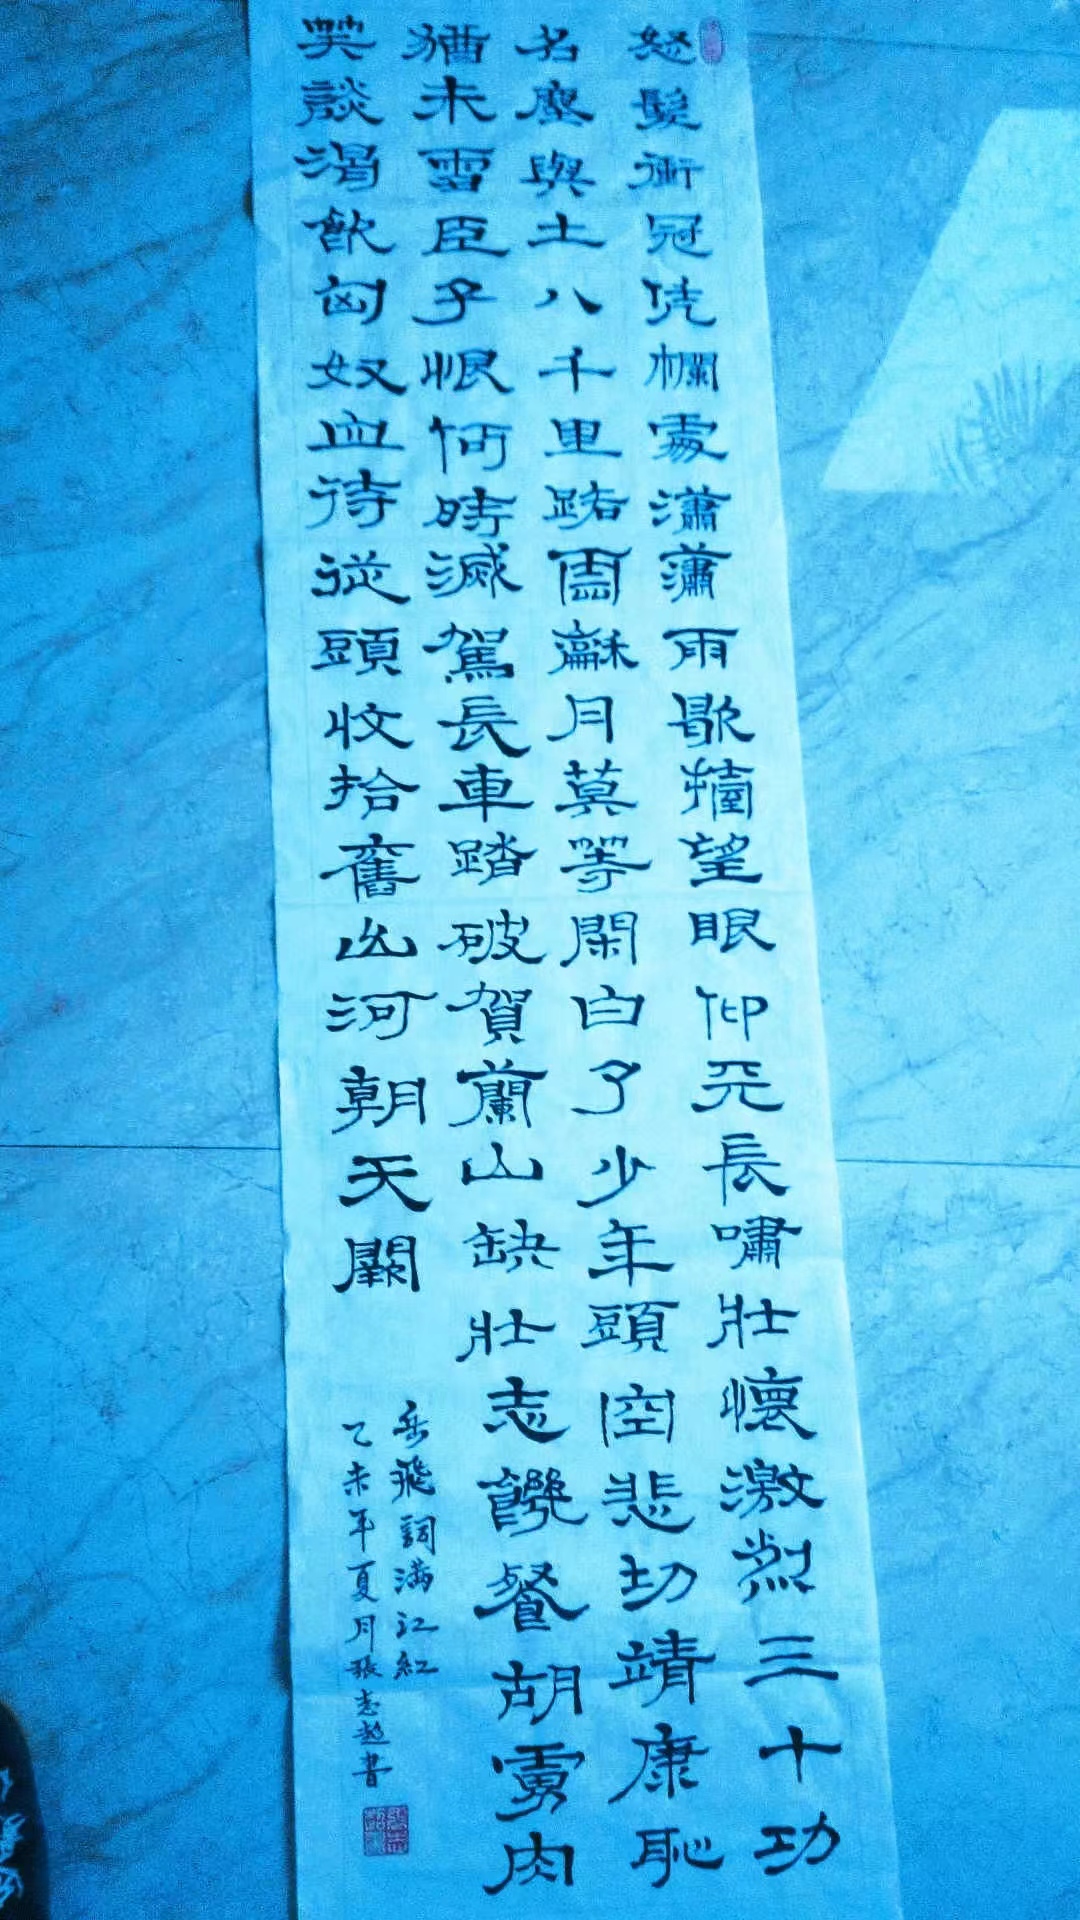 怒髮衝冠凭欄處瀟瀟雨歇擡望眼仰天長嘯壯懷激烈三十功
名塵與土八千里路雲龢月莫等閑白了少年頭空悲切靖康恥
猶未雪臣子恨何時滅駕長車踏破賀蘭山缺壯志饑餐胡虜肉
笑談渴飲匈奴血待從頭收拾舊山河朝天闕
岳飛詞滿江紅
乙未年夏月張志超書